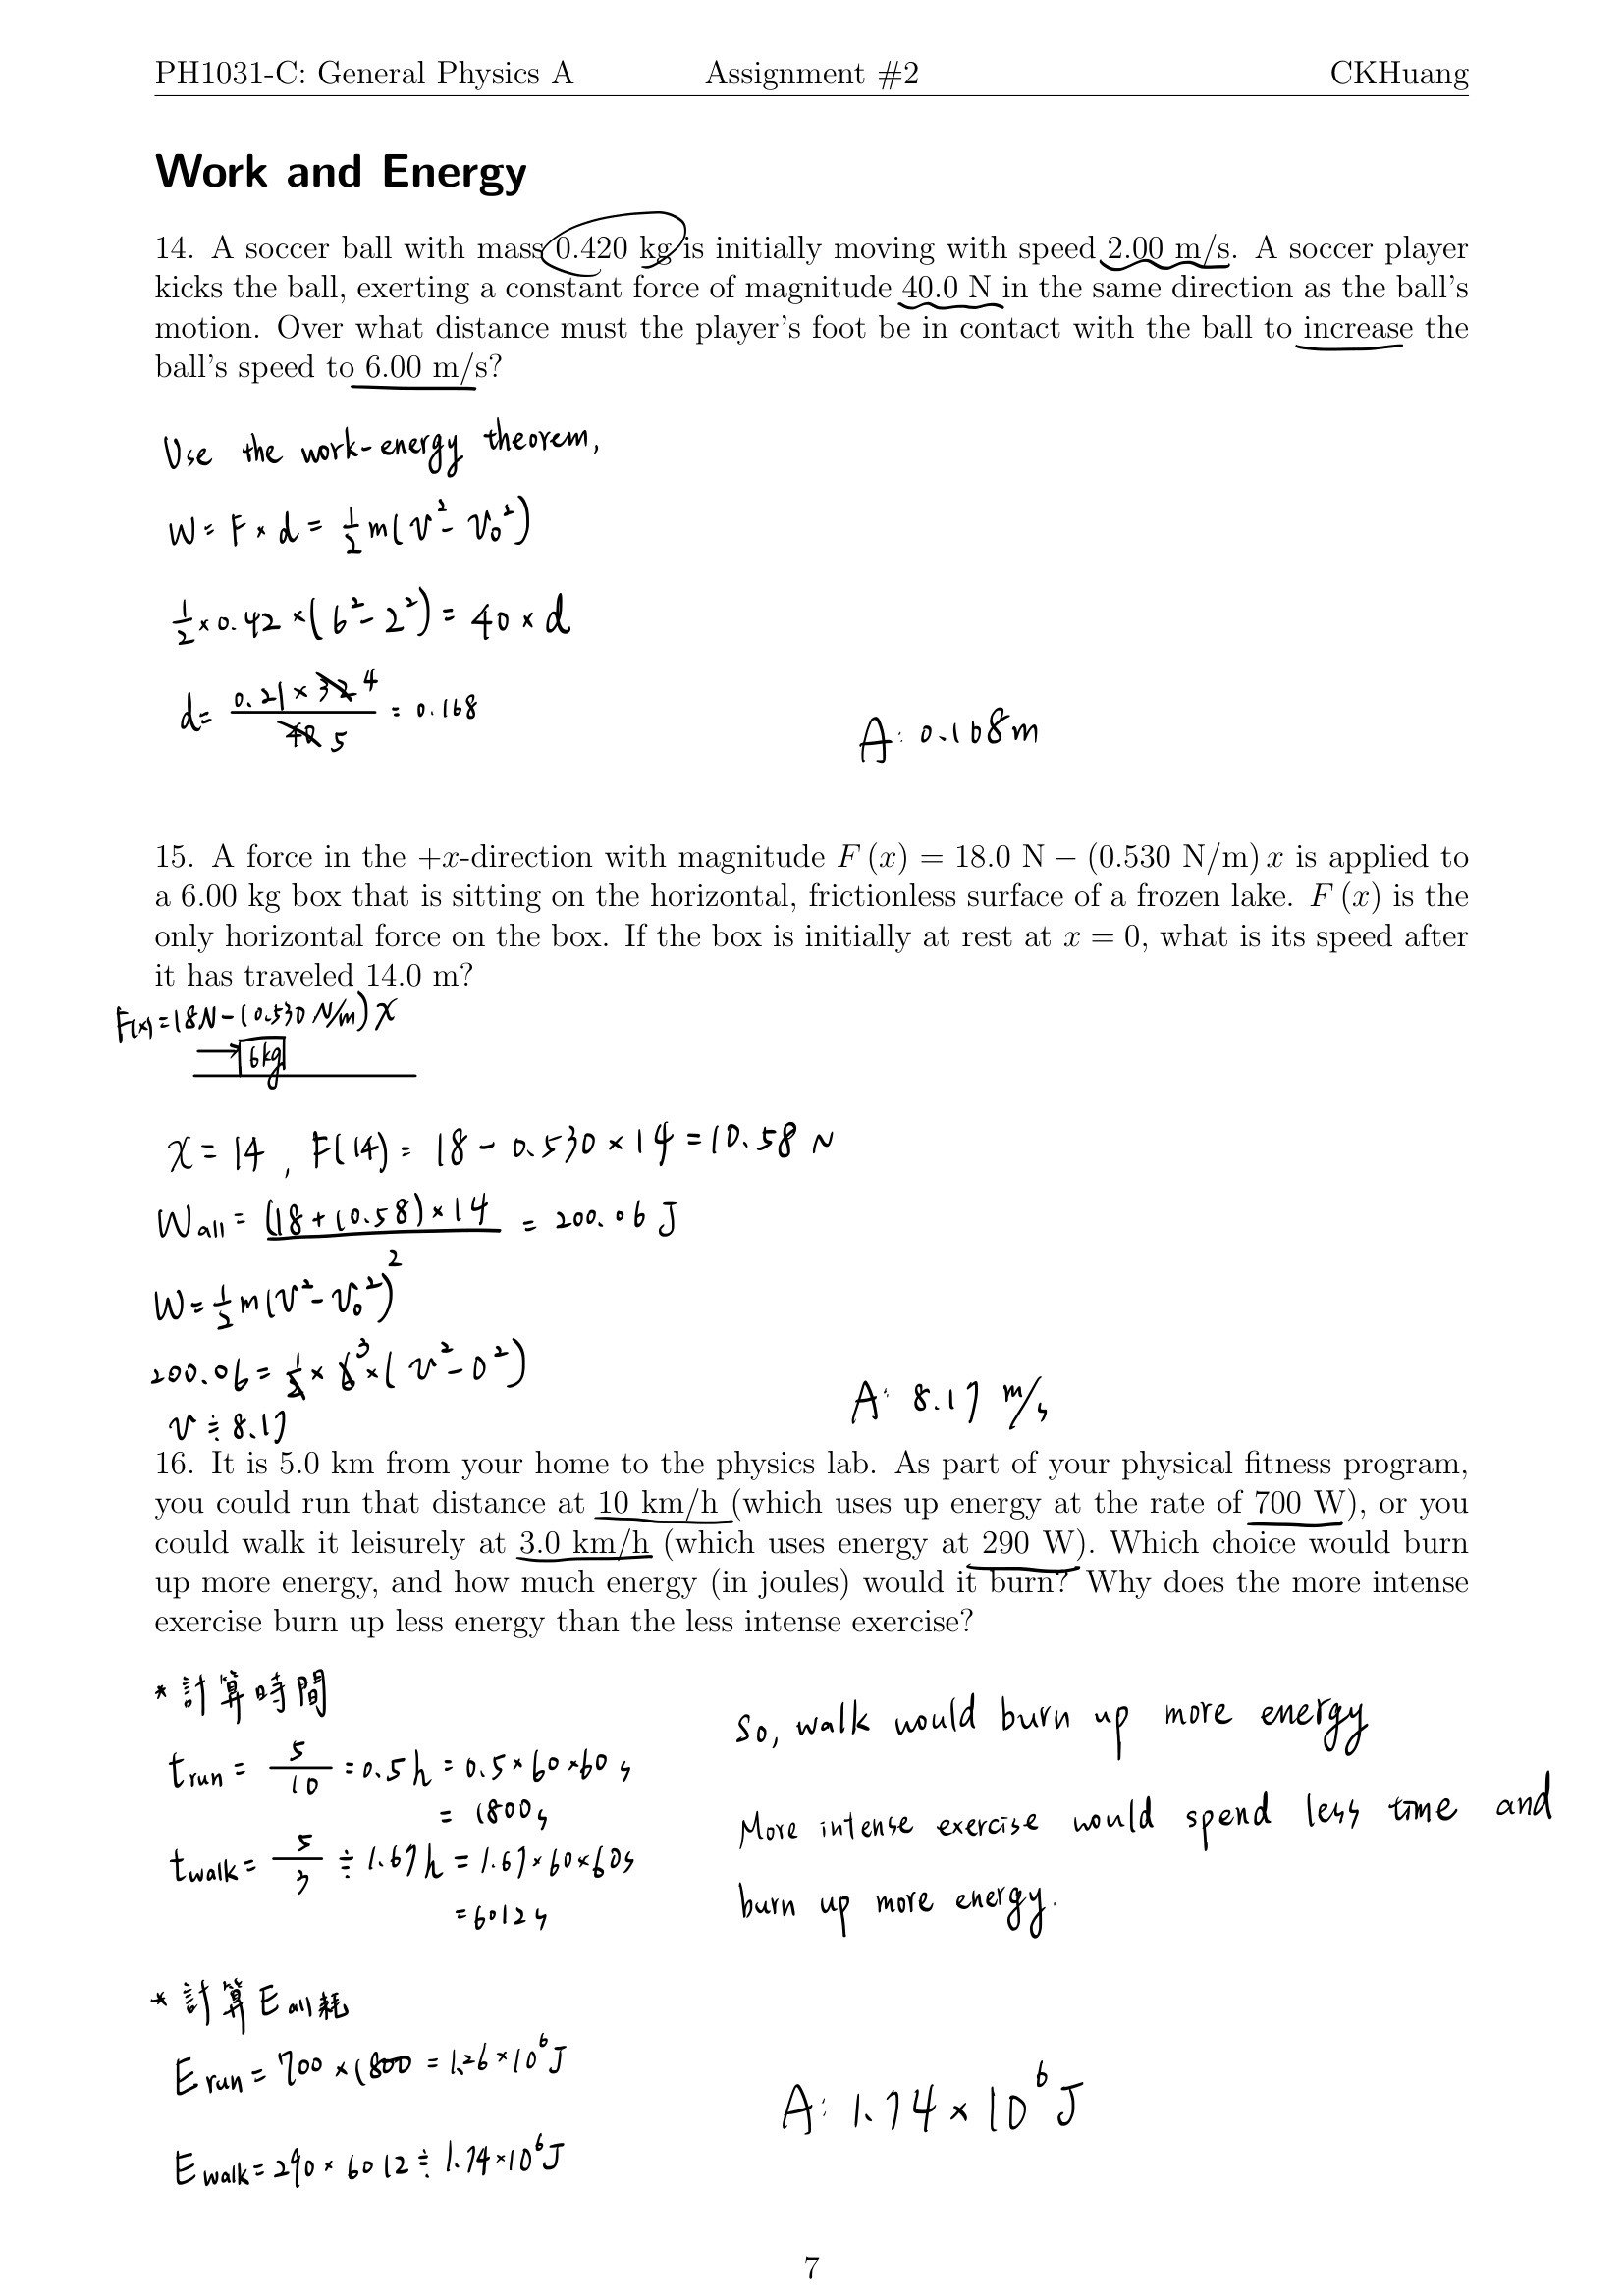 PH1031-C: General Physics A Assignment #2 CKHuang
Work and Energy
14. A soccer ball with mass 0.420 kg is initially moving with speed 2.00 m/s. A soccer player
kicks the ball, exerting a constant force of magnitude 40.0 N in the same direction as the ball's
motion. Over what distance must the player's foot be in contact with the ball to increase the
ball's speed to 6.00 m/s?
Use the work-energy theorem,
W = F × d = 1/2 m(v² - v₀²)
1/2 × 0.42 × (6² - 2²) = 40 × d
d = (0.21 × 32 4)/(40 5) = 0.168
A: 0.168m
15. A force in the +x-direction with magnitude F (x) = 18.0 N − (0.530 N/m) x is applied to
a 6.00 kg box that is sitting on the horizontal, frictionless surface of a frozen lake. F (x) is the
only horizontal force on the box. If the box is initially at rest at x = 0, what is its speed after
it has traveled 14.0 m?
F(x) = 18N - (0.530 N/m) x
6kg
x = 14 , F(14) = 18 - 0.530 × 14 = 10.58 N
W all = (18 + 10.58) × 14 / 2 = 200.06 J
W = 1/2 m(v² - v₀²)
200.06 = 1/2 × 6 3 × (v² - 0²)
v ≒ 8.17
A: 8.17 m/s
16. It is 5.0 km from your home to the physics lab. As part of your physical fitness program,
you could run that distance at 10 km/h (which uses up energy at the rate of 700 W), or you
could walk it leisurely at 3.0 km/h (which uses energy at 290 W). Which choice would burn
up more energy, and how much energy (in joules) would it burn? Why does the more intense
exercise burn up less energy than the less intense exercise?
* 計算時間
t run = 5/10 = 0.5 h = 0.5 × 60 × 60 s
= 1800 s
t walk = 5/3 ≒ 1.67 h = 1.67 × 60 × 60 s
= 6012 s
So, walk would burn up more energy
More intense exercise would spend less time and
burn up more energy.
* 計算 E all 耗
E run = 700 × 1800 = 1.26 × 10⁶ J
E walk = 290 × 6012 ≒ 1.74 × 10⁶ J
A: 1.74 × 10⁶ J
7